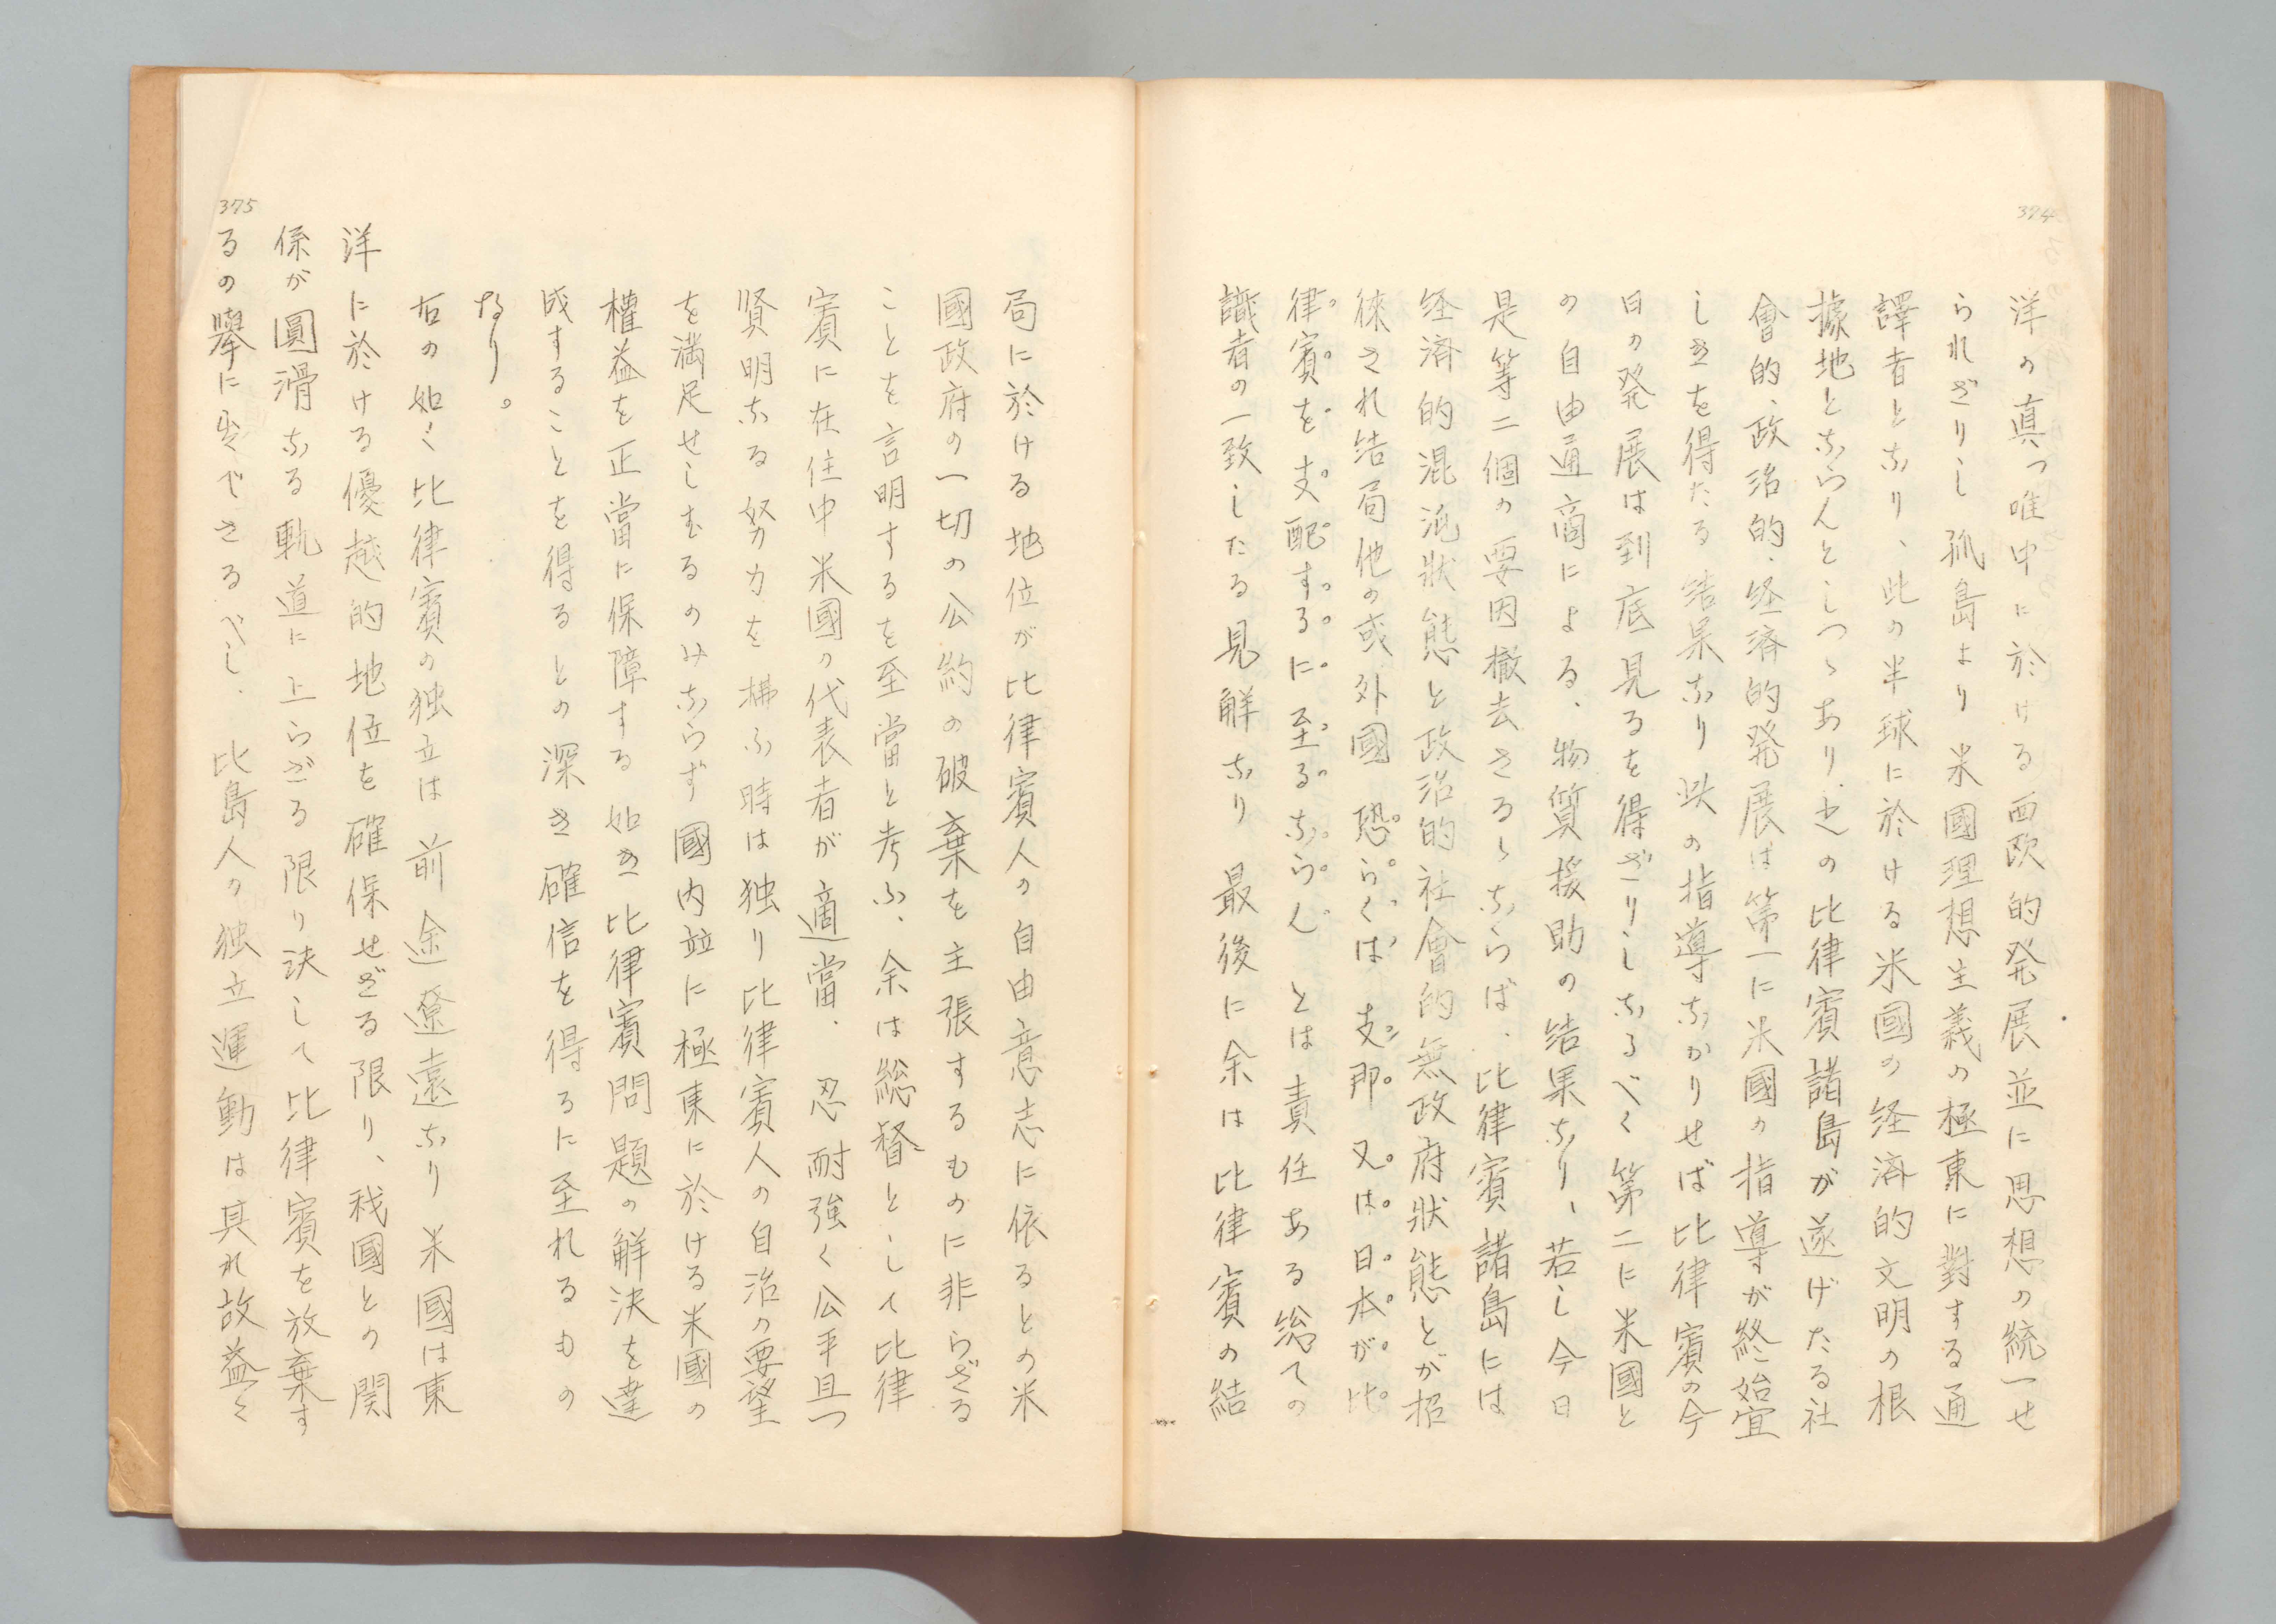 374
洋の真つ唯中に於ける西欧的発展並に思想の統一せ
られざりし孤島より米國理想主義の極東に對する通
譯者となり、此の半球に於ける米國の経済的文明の根
據地とならんとしつゝあり、之の比律賓諸島が遂げたる社
會的、政治的、経済的発展は第一に米國の指導が終始宜
しきを得たる結果なり 此の指導なかりせば比律賓の今
日の発展は到底見るを得ざりしなるべく第二に米國と
の自由通商による、物質援助の結果なり、若し今日
是等二個の要因撤去さるゝならば、比律賓諸島には
経済的混沌狀態と政治的社會的無政府狀態とが招
徠され結局他の或外國 恐らくは 支那 又は日本が比
律賓を支配するに至るならん とは責任ある総ての
識者の一致したる見解なり 最後に余は比律賓の結
局に於ける地位が比律賓人の自由意志に依るとの米
國政府の一切の公約の破棄を主張するものに非らざる
ことを言明するを至當と考ふ、余は総督として比律
賓に在住中米國の代表者が適當、忍耐強く公平且つ
賢明なる努力を拂ふ時は独り比律賓人の自治の要望
を満足せしむるのみならず國内並に極東に於ける米國の
權益を正當に保障する如き比律賓問題の解決を達
成することを得るとの深き確信を得るに至れるもの
なり。
右の如く比律賓の独立は前途遼遠なり米國は東
洋に於ける優越的地位を確保せざる限り、我國との関
係が圓滑なる軌道に上らざる限り決して比律賓を放棄す
375
るの擧に出でざるべし、比島人の独立運動は其れ故益々